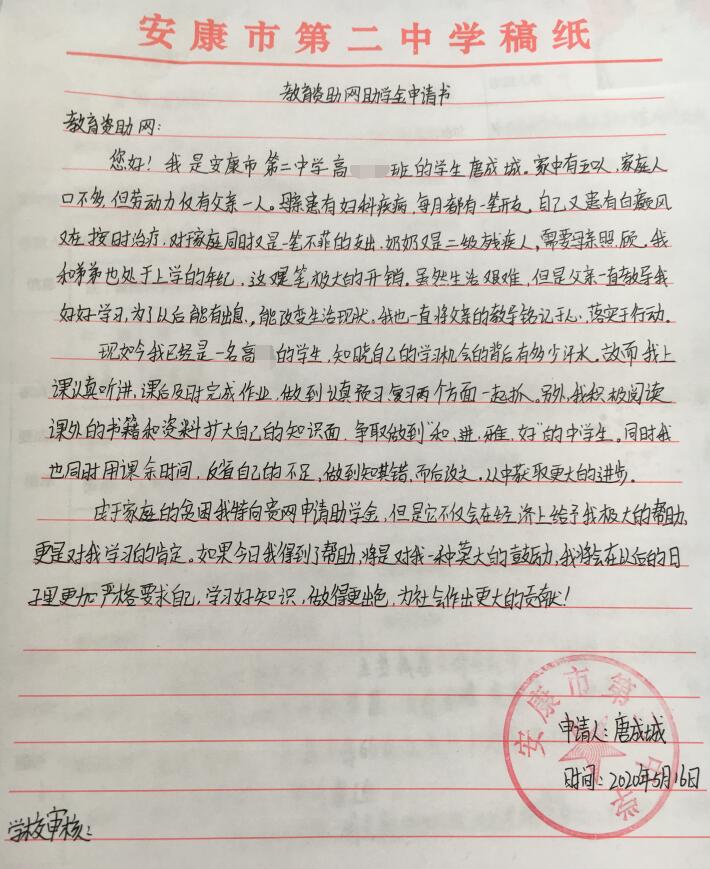 安康市第二中学稿纸
教育资助网助学金申请书
教育资助网：
您好！我是安康市第二中学高班的学生唐成城。家中有五口人，家庭人
口不多，但劳动力仅有父亲一人。母亲患有妇科疾病，每月都有一笔开支。自己又患有白癜风
又在按时治疗，对家庭同时又是一笔不菲的支出，奶奶又是二级残疾人，需要母亲照顾。我
和弟弟也处于上学的年纪，这更是笔极大的开销。虽然生活艰难，但是父亲一直教导我
好好学习，为了以后能有出息，能改变生活现状。我也一直将父亲的教导铭记于心，落实于行动。
现如今我已经是一名高的学生，知晓自己的学习机会的背后有多少汗水。故而我上
课认真听讲，课后及时完成作业，做到认真预习复习两个方面一起抓。另外，我积极阅读
课外的书籍和资料扩大自己的知识面，争取做到“和、进、雅、好”的中学生。同时我
也同时用课余时间，反省自己的不足，做到知其错，而后改之，从中获取更大的进步。
由于家庭的贫困我特向贵网申请助学金，但是它不仅会在经济上给予我极大的帮助，
更是对我学习的肯定。如果今日我得到了帮助，将是对我一种莫大的鼓励，我将会在以后的日
子里更加严格要求自己，学习好知识，做得更出色，为社会作出更大的贡献！
安康市第二中学
申请人：唐成城
时间：2020年5月16日
学校审核：